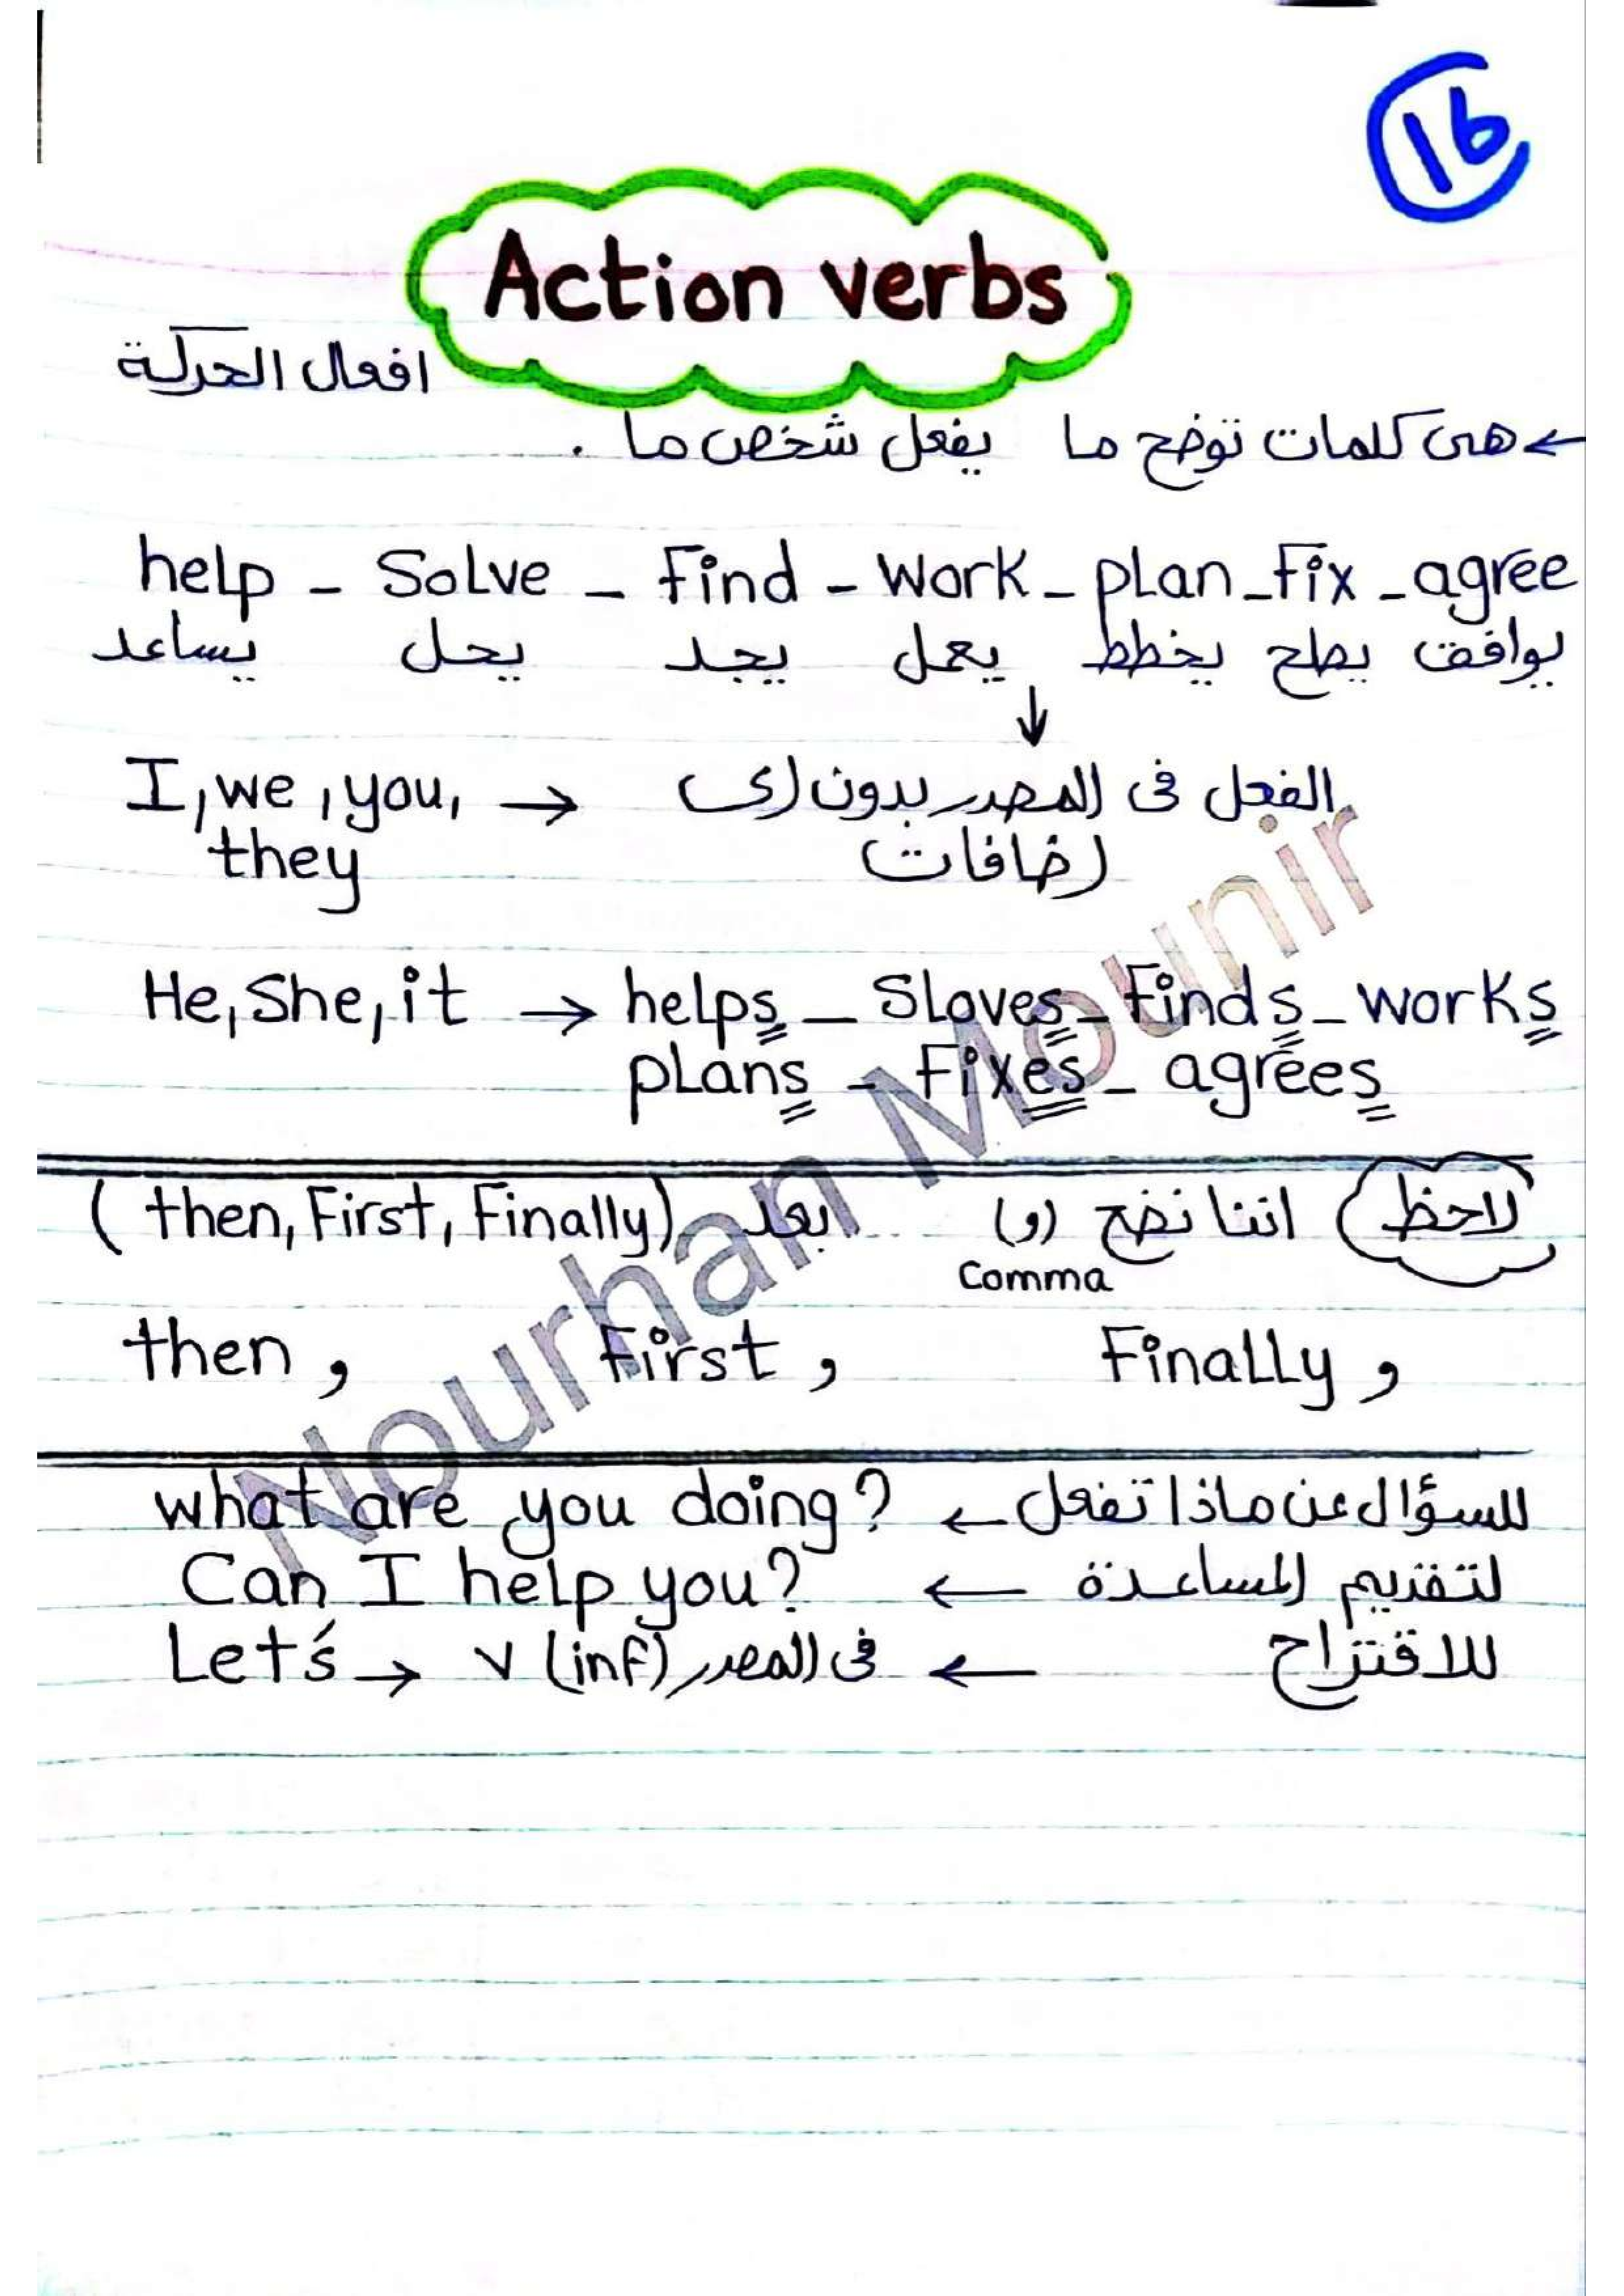 16
Action verbs
افعال الحركة
← هى كلمات توضح ما يفعل شخص ما .
help - Solve - Find - Work - plan - fix - agree
يساعد يحل يجد يعمل يخطط يصلح يوافق
↓
I, we, you, → الفعل فى المصدر بدون اى
they اضافات
He, She, it → helps - Sloves - Finds - works
plans - Fixes - agrees
لاحظ اننا نضع (و) بعد (then, First, Finally)
Comma
then , First , Finally ,
what are you doing? ← للسؤال عن ماذا تفعل
Can I help you? ← لتقديم المساعدة
Let's → v (inf) فى المصدر ← للاقتراح
Nourhan Mounir